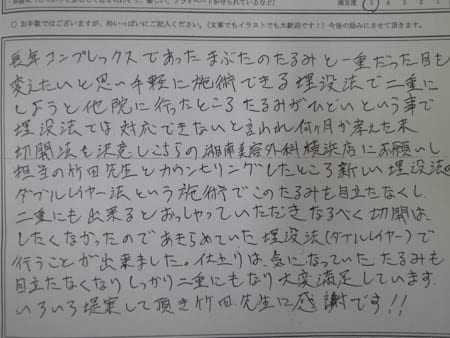 満足度 5 4 3 2 1
○ お手数ではございますが、枠いっぱいにご記入ください。(文章でもイラストでも大歓迎です!)今後の励みにさせて頂きます。
長年コンプレックスであったまぶたのたるみと一重だった目も
変えたいと思い手軽に施術できる埋没法で二重に
しようと他院に行ったところたるみがひどいという事で
埋没法では対応できないと言われ何ヶ月か考えた末
切開法も決意しこちらの湘南美容外科横浜店にお願いし
担当の竹田先生とカウンセリングしたところ新しい埋没法の
ダブルレイヤー法という施術でこのたるみも目立たなくし
二重にも出来るとおっしゃっていただきなるべく切開は
したくなかったのであきらめていた埋没法(ダブルレイヤー)で
行うことが出来ました。仕上りは、気になっていたたるみも
目立たなくなりしっかり二重にもなり大変満足しています。
いろいろ提案して頂き竹田先生に感謝です!!